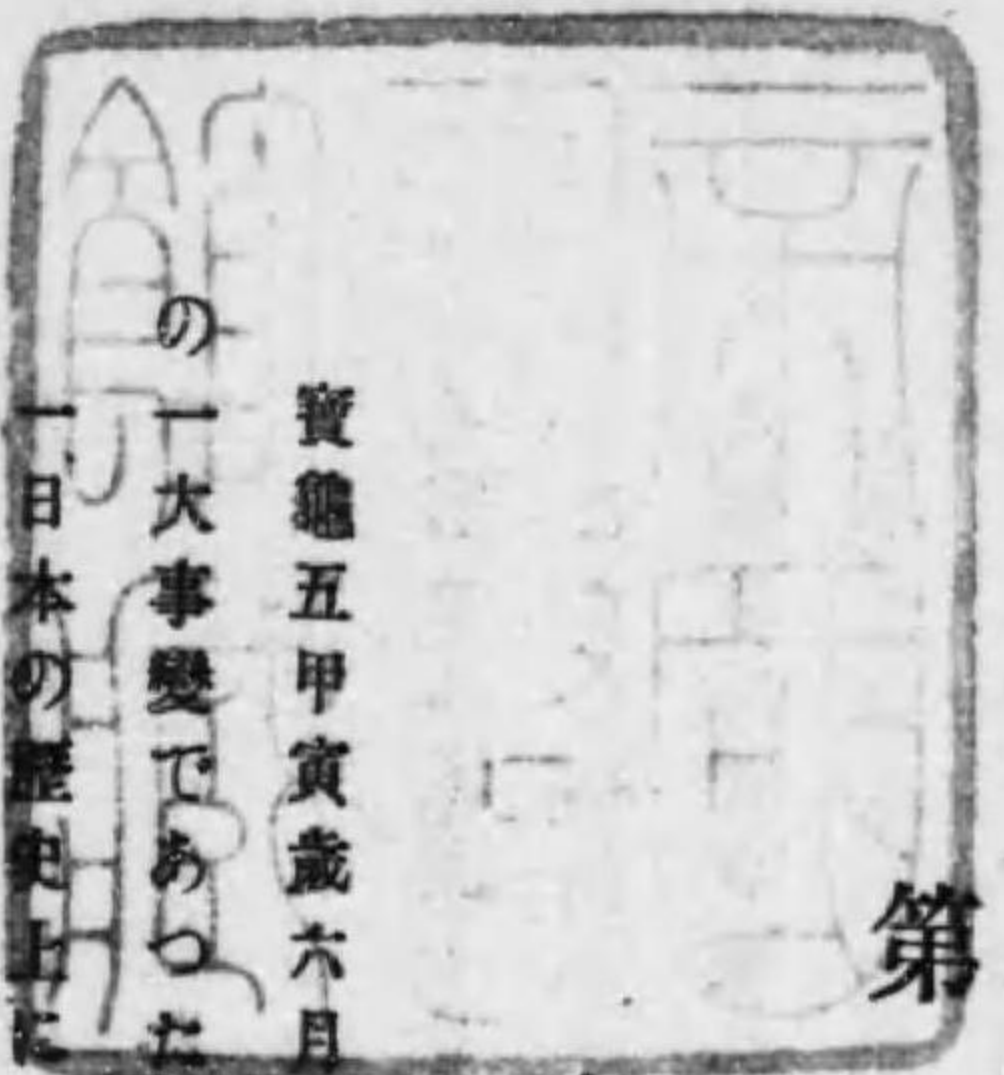 第
寶龜五甲寅歲六月
の一大事變であつた
一日本の歷史上に